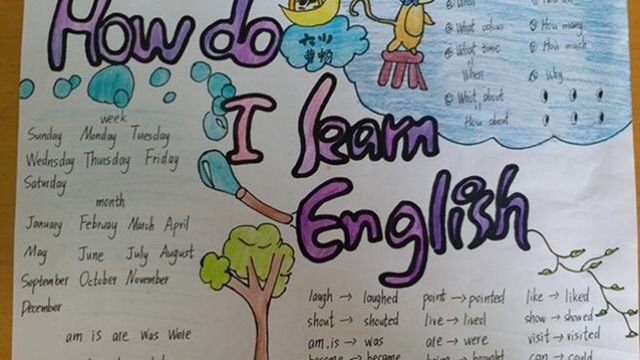 How do
I learn
English
六(4)
曹畅
What colour
How many
What time
How much
When
Why
What about
How about
week
Sunday Monday Tuesday
Wednesday Thursday Friday
Saturday
month
January February March April
May June July August
September October November
December
am is are was were
laugh → laughed point → pointed like → liked
shout → shouted live → lived show → showed
am.is → was are → were visit → visited
become → became bring → brought can → could